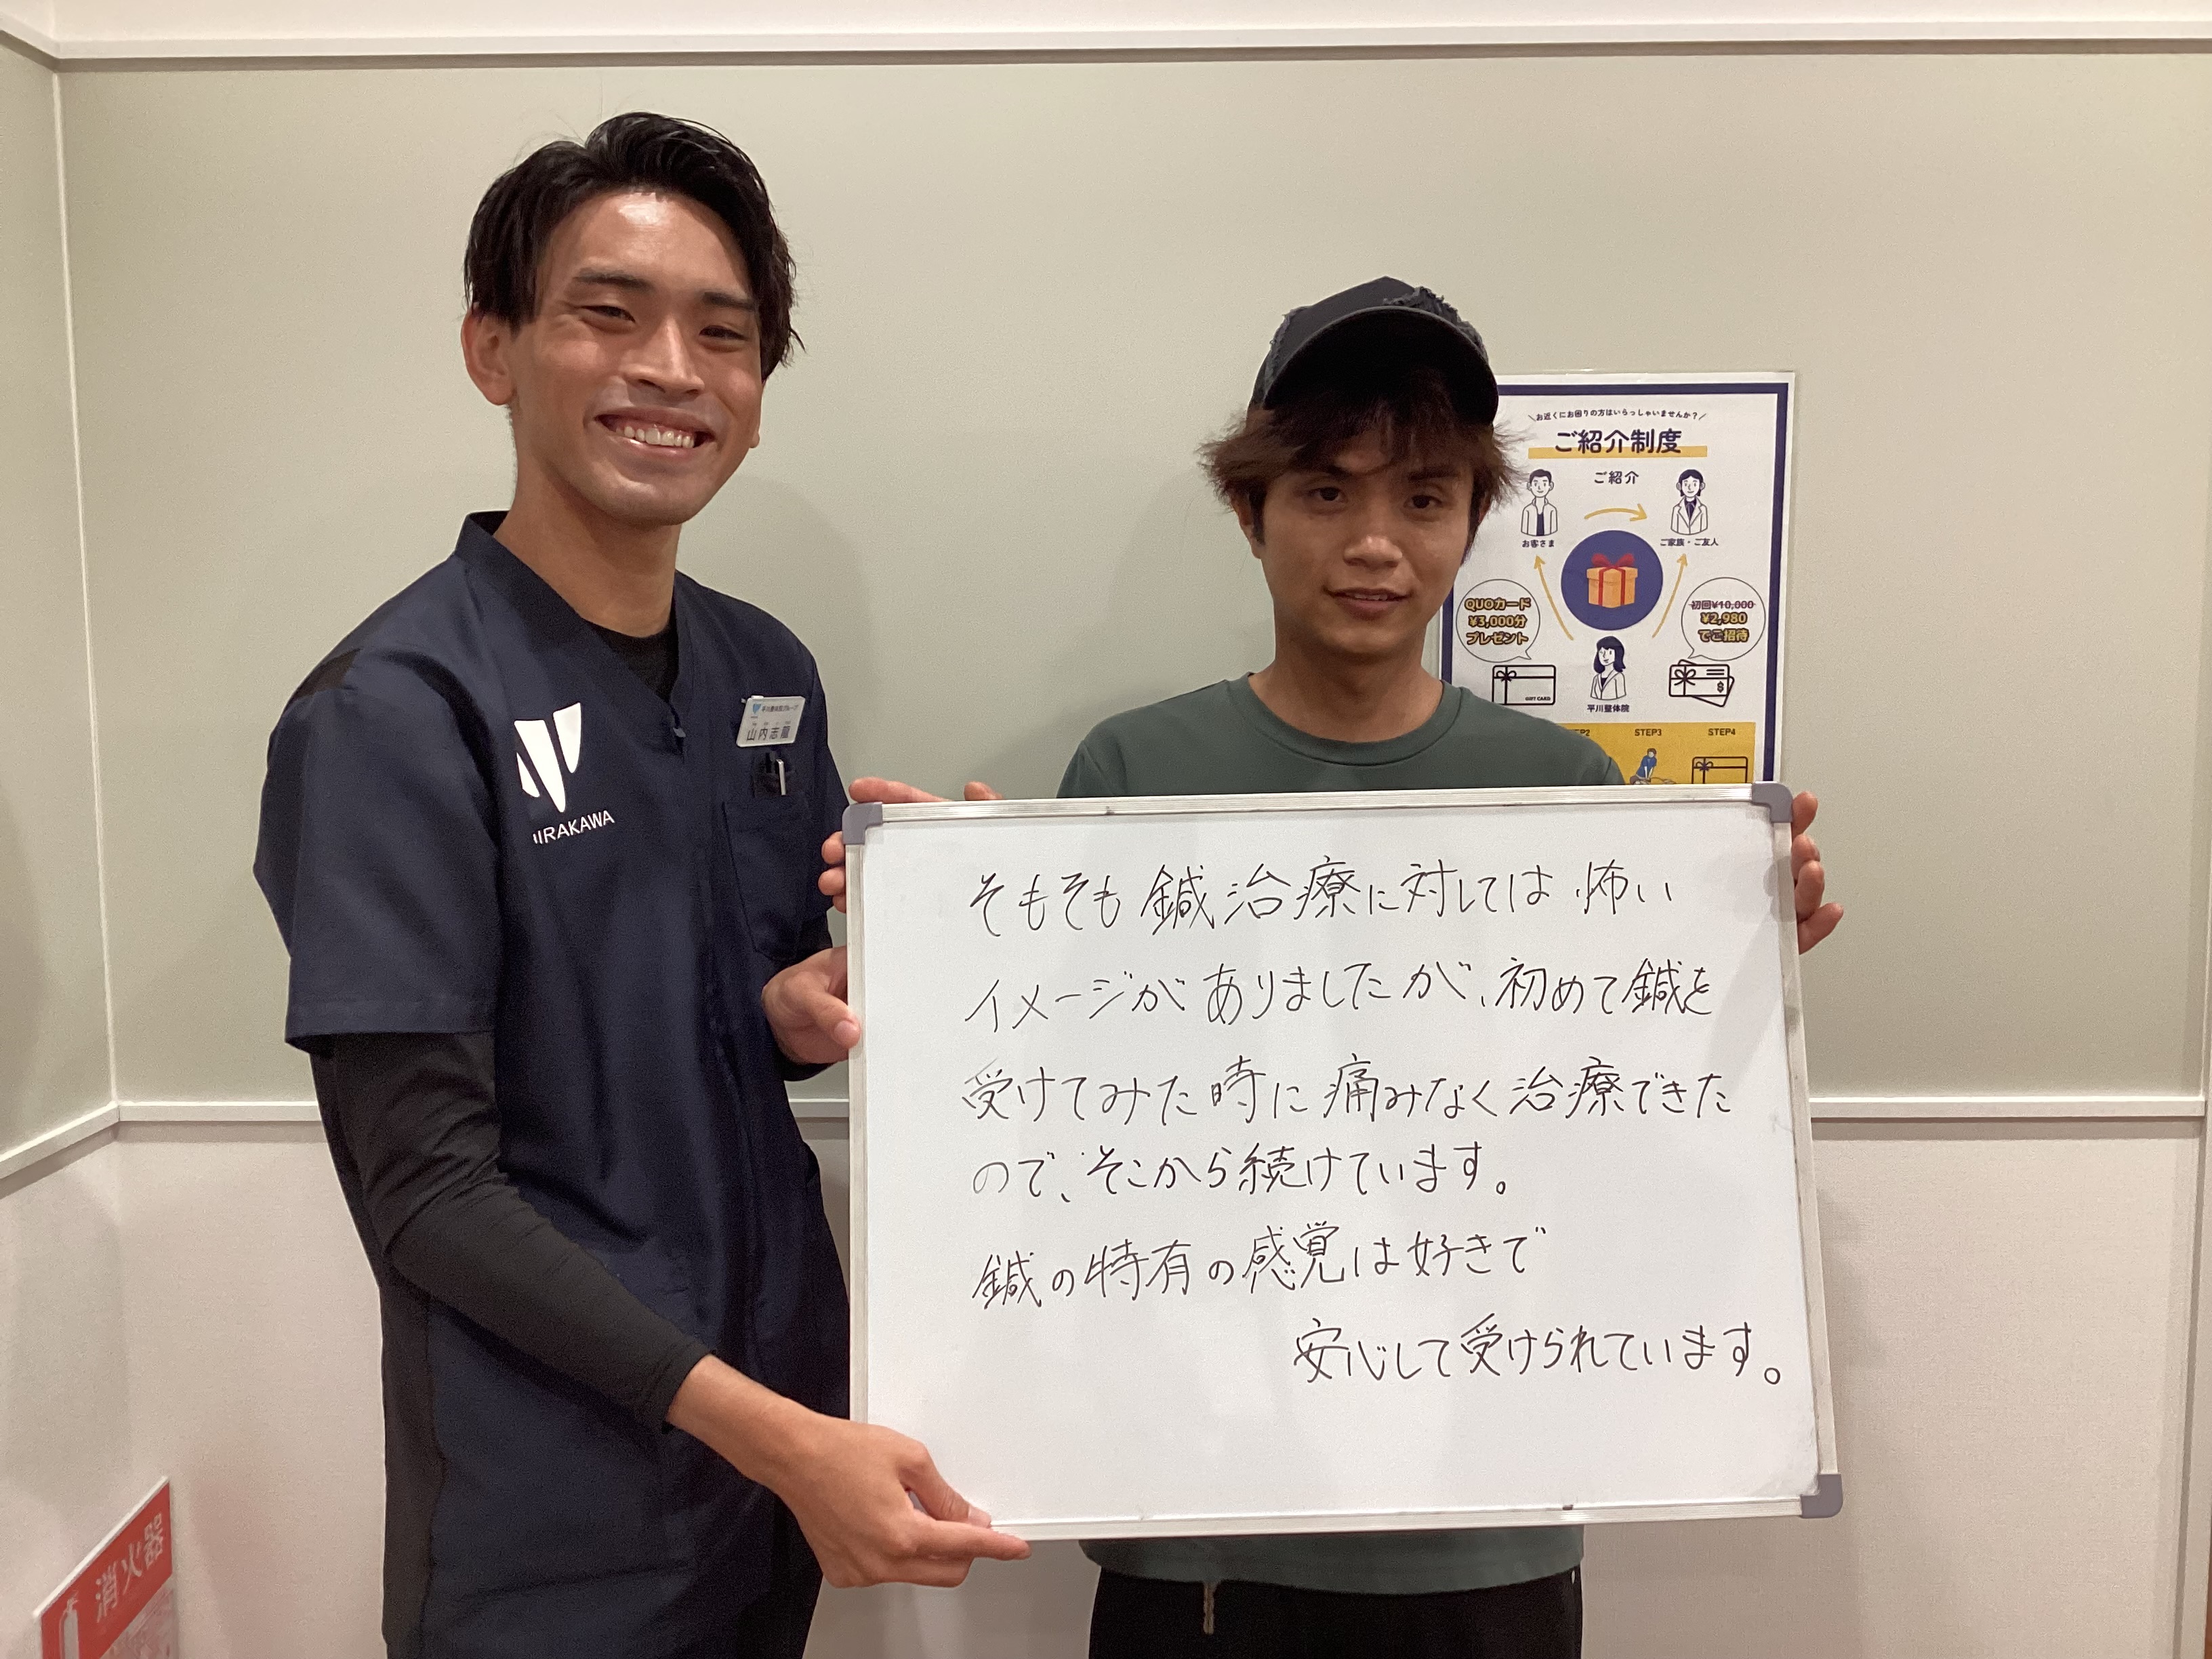 そもそも鍼治療に対しては怖い
イメージがありましたが、初めて鍼を
受けてみた時に痛みなく治療できた
ので、そこから続けています。
鍼の特有の感覚は好きで
安心して受けられています。
IRAKAWA
平川整体院グループ
山内志龍
＼お近くにお困りの方はいらっしゃいませんか？／
ご紹介制度
ご紹介
お客さま
ご家族・ご友人
QUOカード
¥3,000分
プレゼント
初回¥10,000
¥2,980
でご招待
GIFT CARD
平川整体院
STEP3
STEP4
消火器